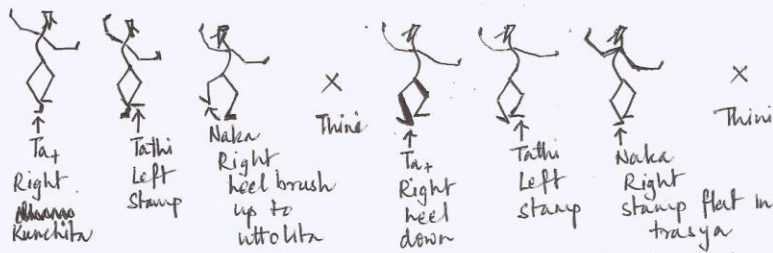 Ta+
Right
Kunchita
Tathi
Left
Stamp
Naka
Right
heel brush
up to
uttolita
×
Thini
Ta+
Right
heel
down
Tathi
Left
stamp
Naka
Right
stamp flat in
trasya
×
Thini